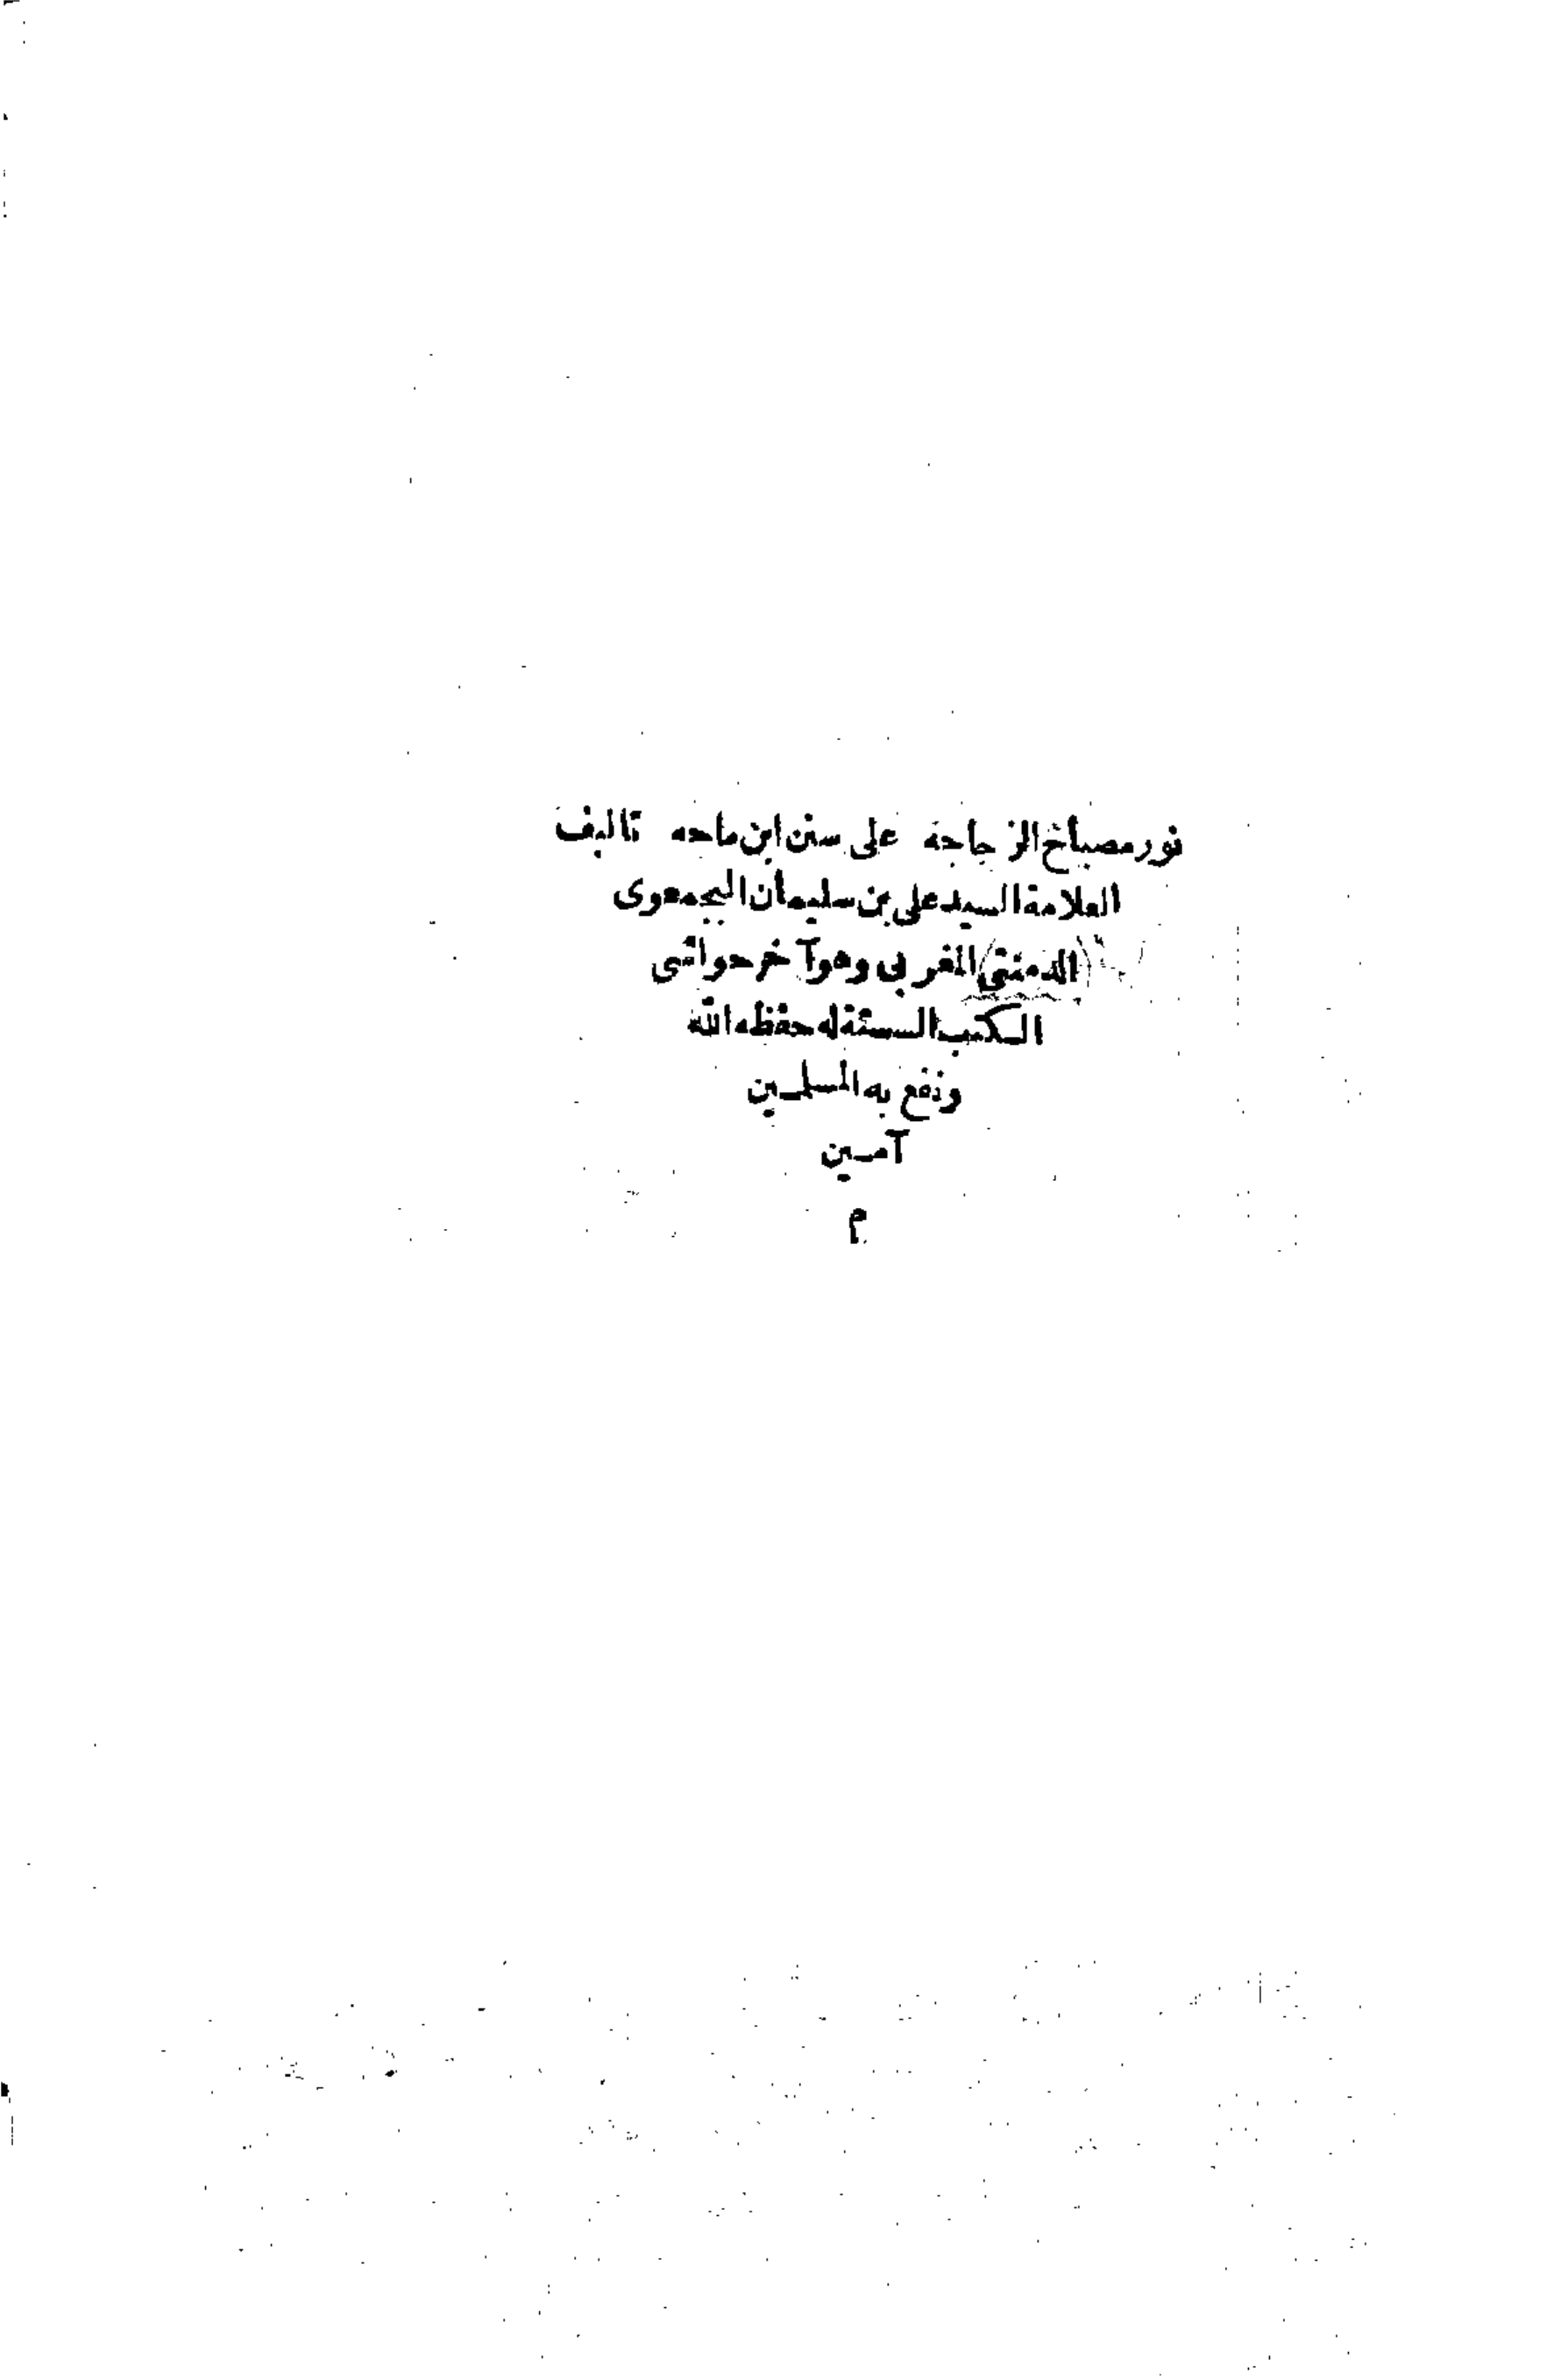 نور مصباح الزجاجة على سنن ابن ماجه تاليف
العلامة السيد على بن سليمان البجمعوى
الدمنتى المغربى وهو آخر حواشى
الكتب الستة له حفظه الله
ونفع به المسلمين
آمين
م